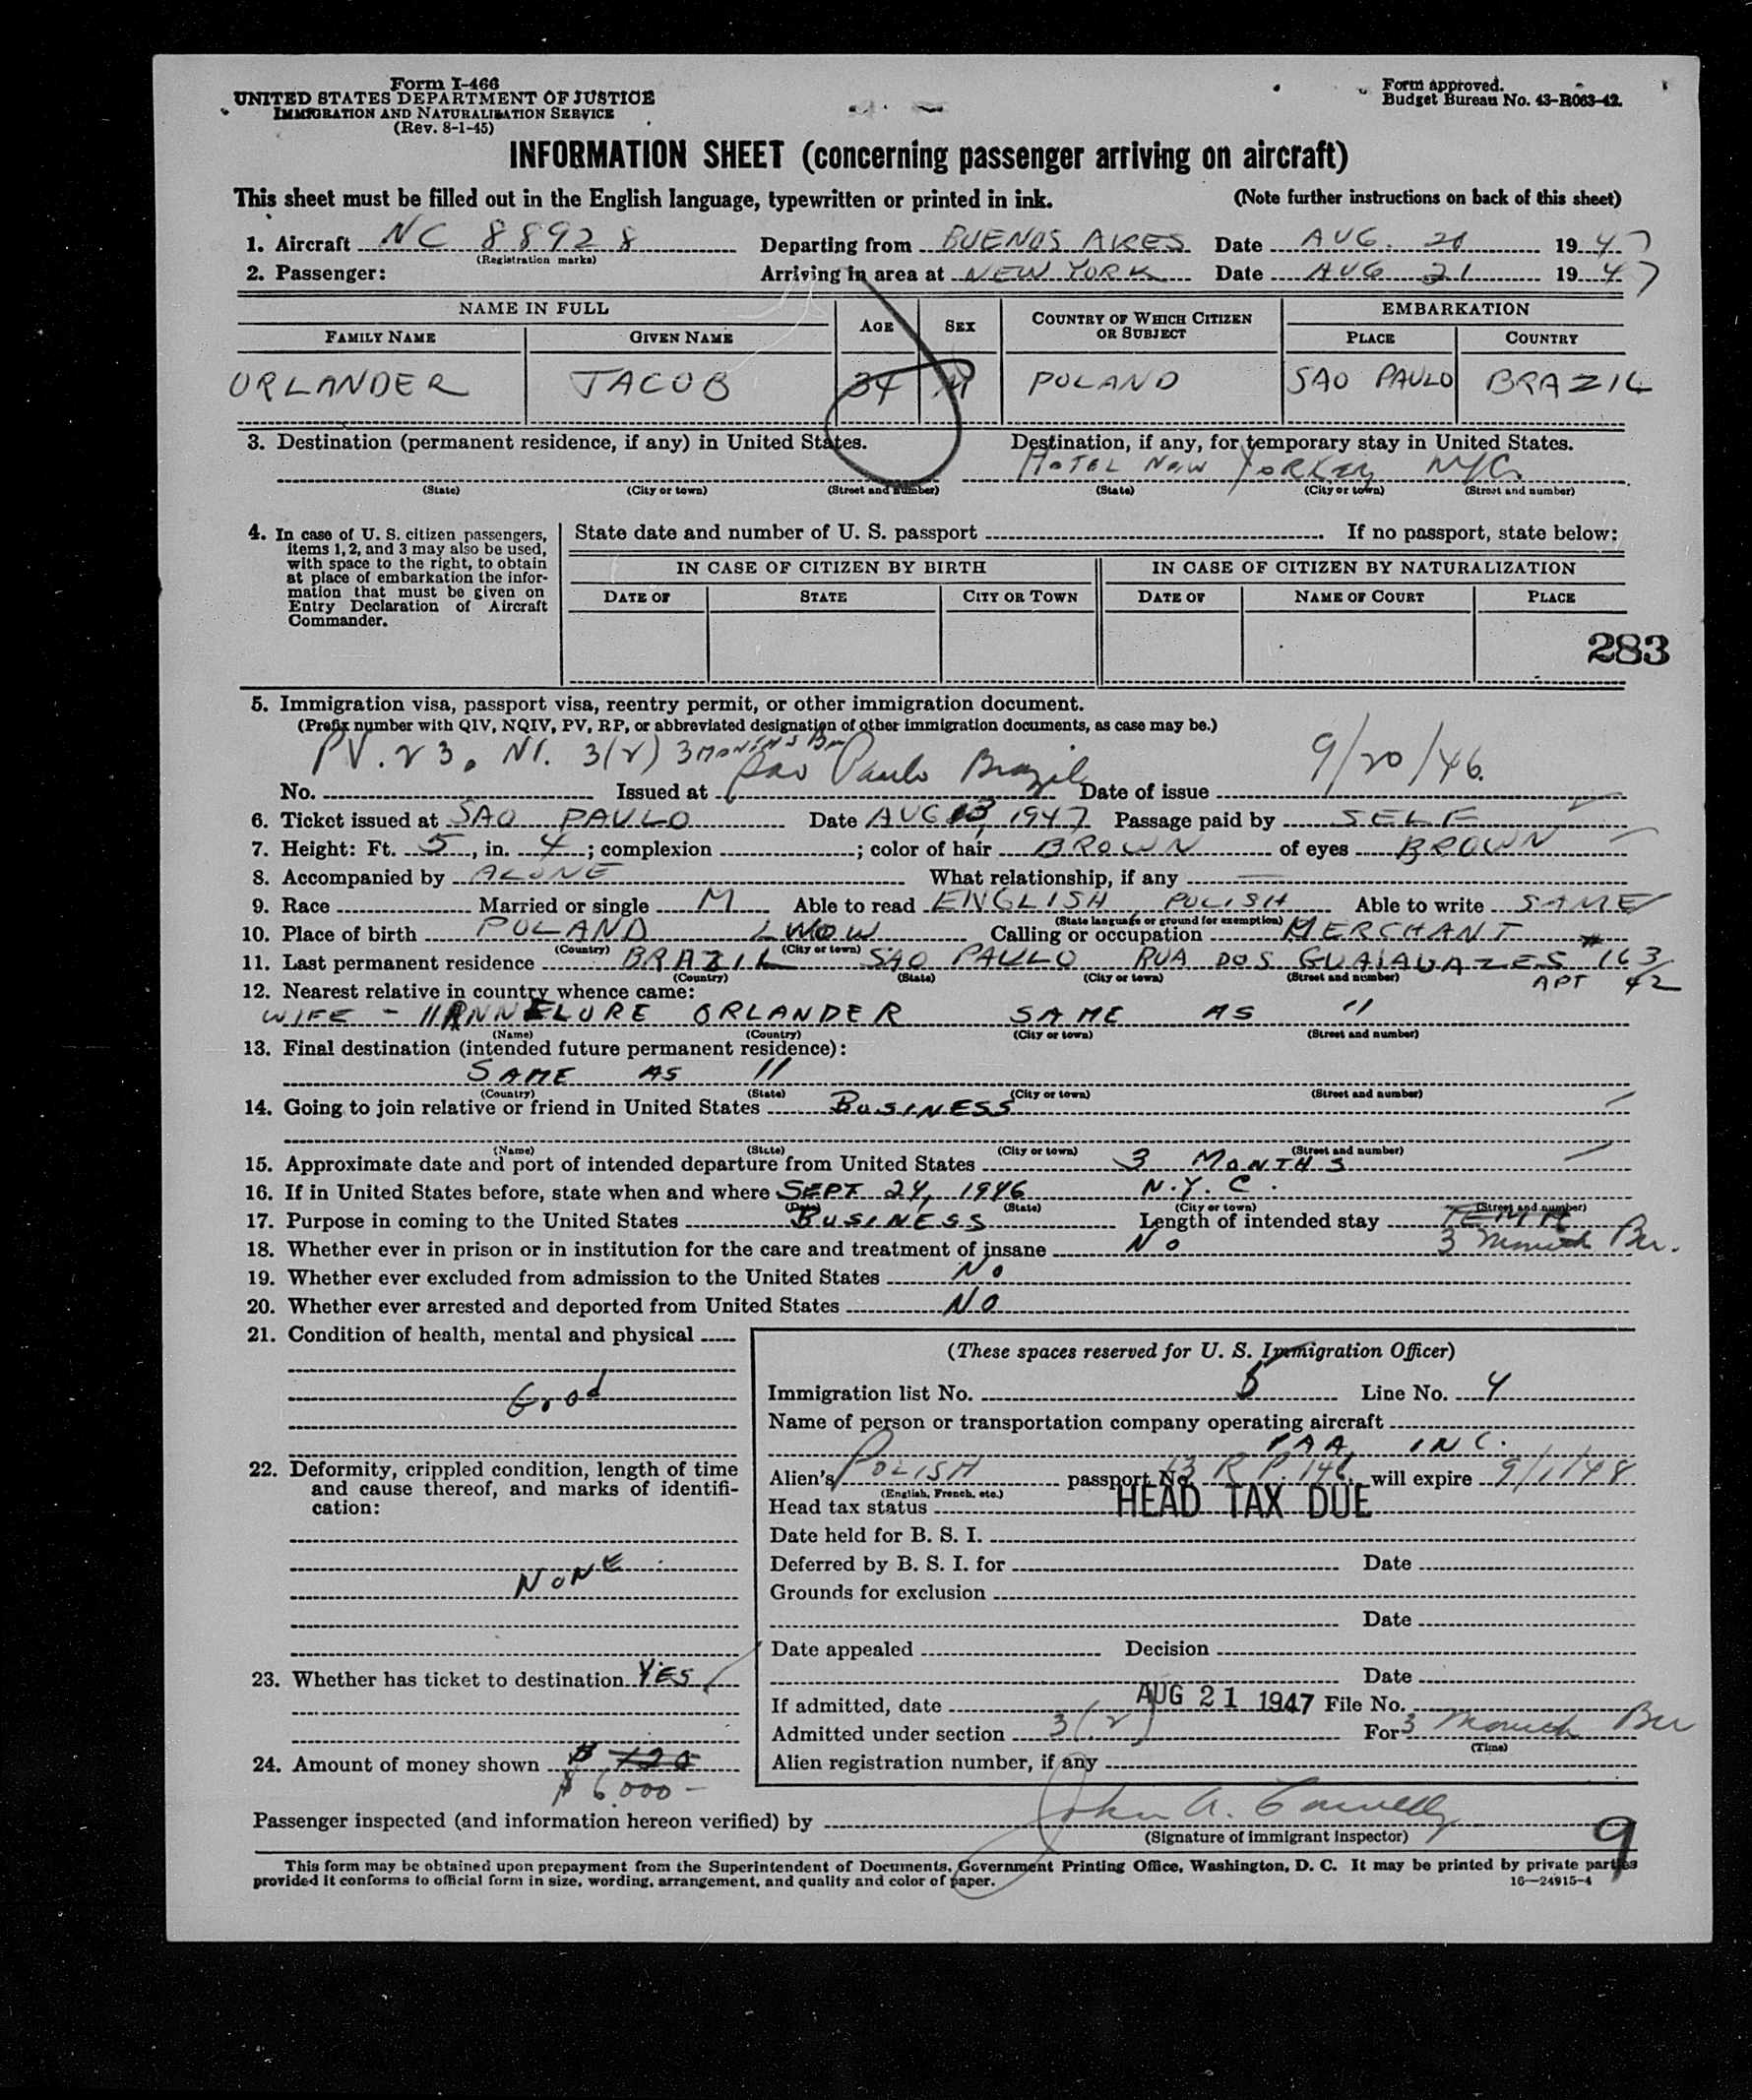 Form I-466
UNITED STATES DEPARTMENT OF JUSTICE
IMMIGRATION AND NATURALIZATION SERVICE
(Rev. 8-1-45)
Form approved.
Budget Bureau No. 43-R063-42.
INFORMATION SHEET (concerning passenger arriving on aircraft)
This sheet must be filled out in the English language, typewritten or printed in ink. (Note further instructions on back of this sheet)
1. Aircraft NC 88928 Departing from BUENOS AIRES Date AUG. 20 1947
(Registration marks)
2. Passenger: Arriving in area at NEW YORK Date AUG 21 1947
NAME IN FULL AGE SEX COUNTRY OF WHICH CITIZEN OR SUBJECT EMBARKATION
FAMILY NAME GIVEN NAME PLACE COUNTRY
ORLANDER JACOB 34 M POLAND SAO PAULO BRAZIL
3. Destination (permanent residence, if any) in United States. Destination, if any, for temporary stay in United States.
HOTEL NEW YORKER NYC
(State) (City or town) (Street and number) (State) (City or town) (Street and number)
4. In case of U. S. citizen passengers, items 1, 2, and 3 may also be used, with space to the right, to obtain at place of embarkation the information that must be given on Entry Declaration of Aircraft Commander.
State date and number of U. S. passport If no passport, state below:
IN CASE OF CITIZEN BY BIRTH IN CASE OF CITIZEN BY NATURALIZATION
DATE OF STATE CITY OR TOWN DATE OF NAME OF COURT PLACE
283
5. Immigration visa, passport visa, reentry permit, or other immigration document.
(Prefix number with QIV, NQIV, PV, RP, or abbreviated designation of other immigration documents, as case may be.)
PV. 23. 3(2) 3 MONTHS
No. Issued at Sao Paulo Brazil Date of issue 9/20/46
6. Ticket issued at SAO PAULO Date AUG 13, 1947 Passage paid by SELF
7. Height: Ft. 5, in. 4; complexion ; color of hair BROWN of eyes BROWN
8. Accompanied by ALONE What relationship, if any —
9. Race Married or single M Able to read ENGLISH POLISH Able to write SAME
(State language or ground for exemption)
10. Place of birth POLAND LWOW Calling or occupation MERCHANT
(Country) (City or town)
11. Last permanent residence BRAZIL SAO PAULO RUA DOS GUAIAUAZES #163
(Country) (State) (City or town) (Street and number) APT 42
12. Nearest relative in country whence came:
WIFE - HANNELORE ORLANDER SAME AS 11
(Name) (Country) (City or town) (Street and number)
13. Final destination (intended future permanent residence):
SAME AS 11
(Country) (State) (City or town) (Street and number)
14. Going to join relative or friend in United States BUSINESS
(Name) (State) (City or town) (Street and number)
15. Approximate date and port of intended departure from United States 3 MONTHS
16. If in United States before, state when and where SEPT 24, 1946 N.Y.C.
(Date) (State) (City or town) (Street and number)
17. Purpose in coming to the United States BUSINESS Length of intended stay TEMP
18. Whether ever in prison or in institution for the care and treatment of insane No 3 Month
19. Whether ever excluded from admission to the United States No
20. Whether ever arrested and deported from United States NO
21. Condition of health, mental and physical
Good
22. Deformity, crippled condition, length of time and cause thereof, and marks of identification:
NONE
23. Whether has ticket to destination YES
24. Amount of money shown $ 720
$ 6,000 -
(These spaces reserved for U. S. Immigration Officer)
Immigration list No. 5 Line No. 4
Name of person or transportation company operating aircraft
PAA INC.
Alien's POLISH passport No. 13 R P. 146 will expire 9/1/48
(English, French, etc.)
Head tax status HEAD TAX DUE
Date held for B. S. I.
Deferred by B. S. I. for Date
Grounds for exclusion
Date
Date appealed Decision
Date
If admitted, date AUG 21 1947 File No.
Admitted under section 3(2) For 3 Month
(Time)
Alien registration number, if any
Passenger inspected (and information hereon verified) by John A.
(Signature of immigrant inspector)
9
This form may be obtained upon prepayment from the Superintendent of Documents, Government Printing Office, Washington, D. C. It may be printed by private parties
provided it conforms to official form in size, wording, arrangement, and quality and color of paper. 16—24915-4